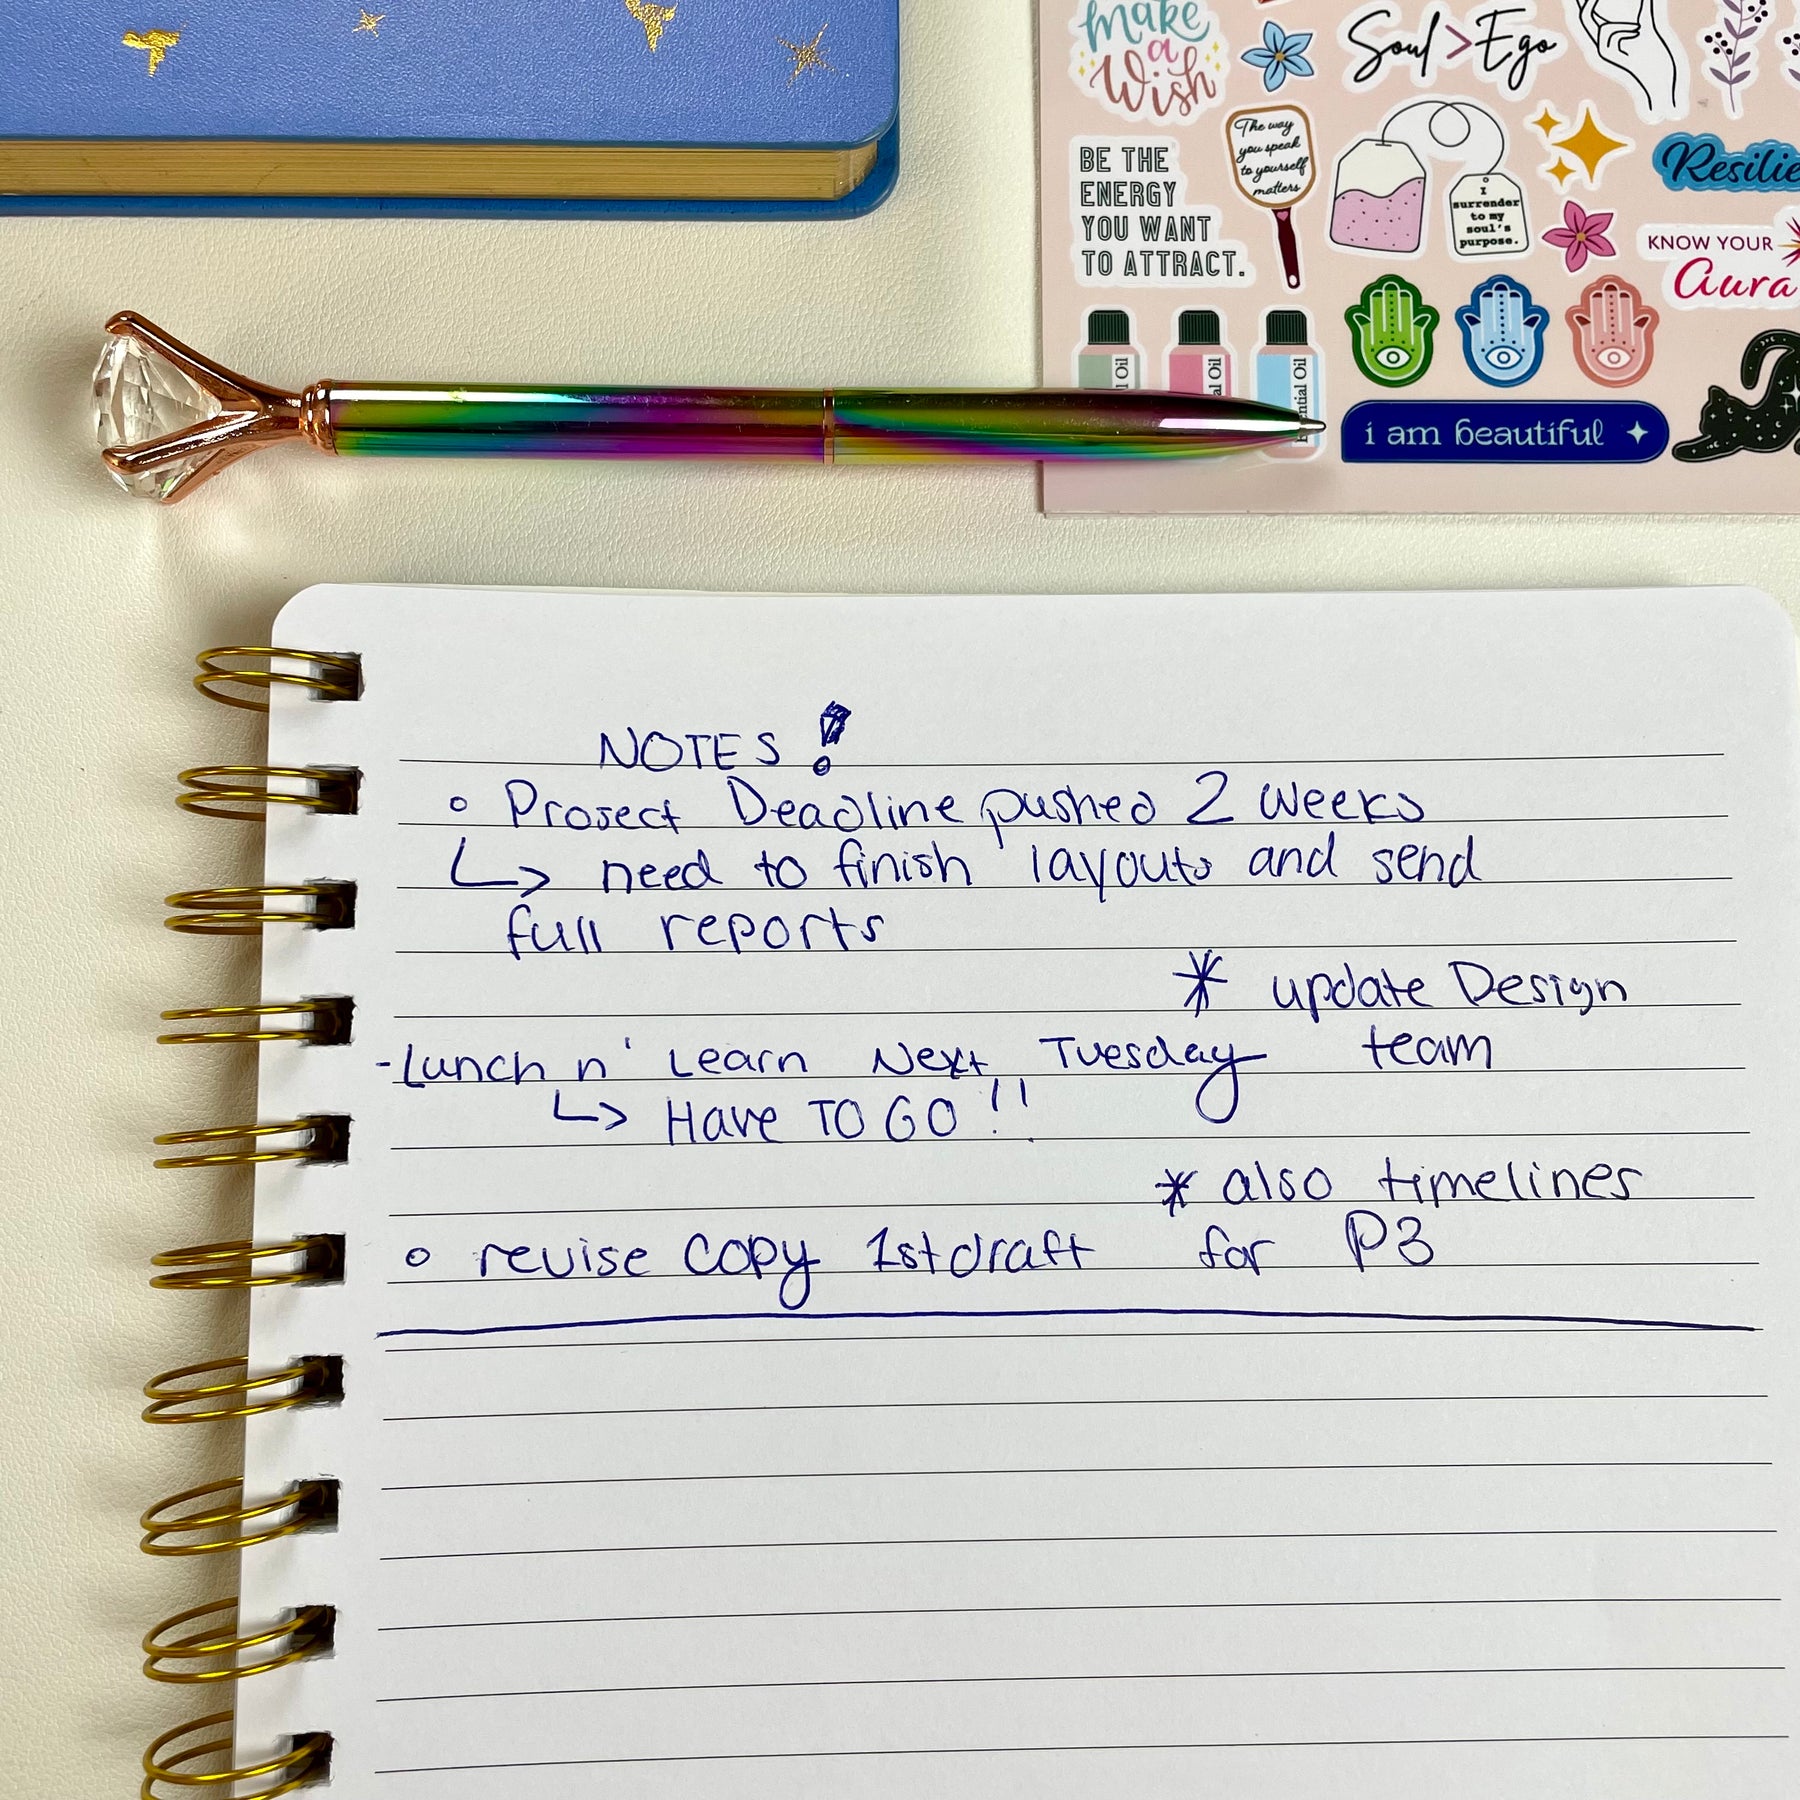 make
a
Wish
Soul > Ego
The way
you speak
to yourself
matters
BE THE
ENERGY
YOU WANT
TO ATTRACT.
I
surrender
to my
soul's
purpose.
KNOW YOUR
Aura
Oil
Oil
i am beautiful
NOTES!
Project Deadline pushed 2 weeks
↳ need to finish layouts and send
full reports
* update Design
team
-Lunch n' Learn Next Tuesday
↳ Have TO GO!!
* also timelines
for P3
revise copy 1st draft